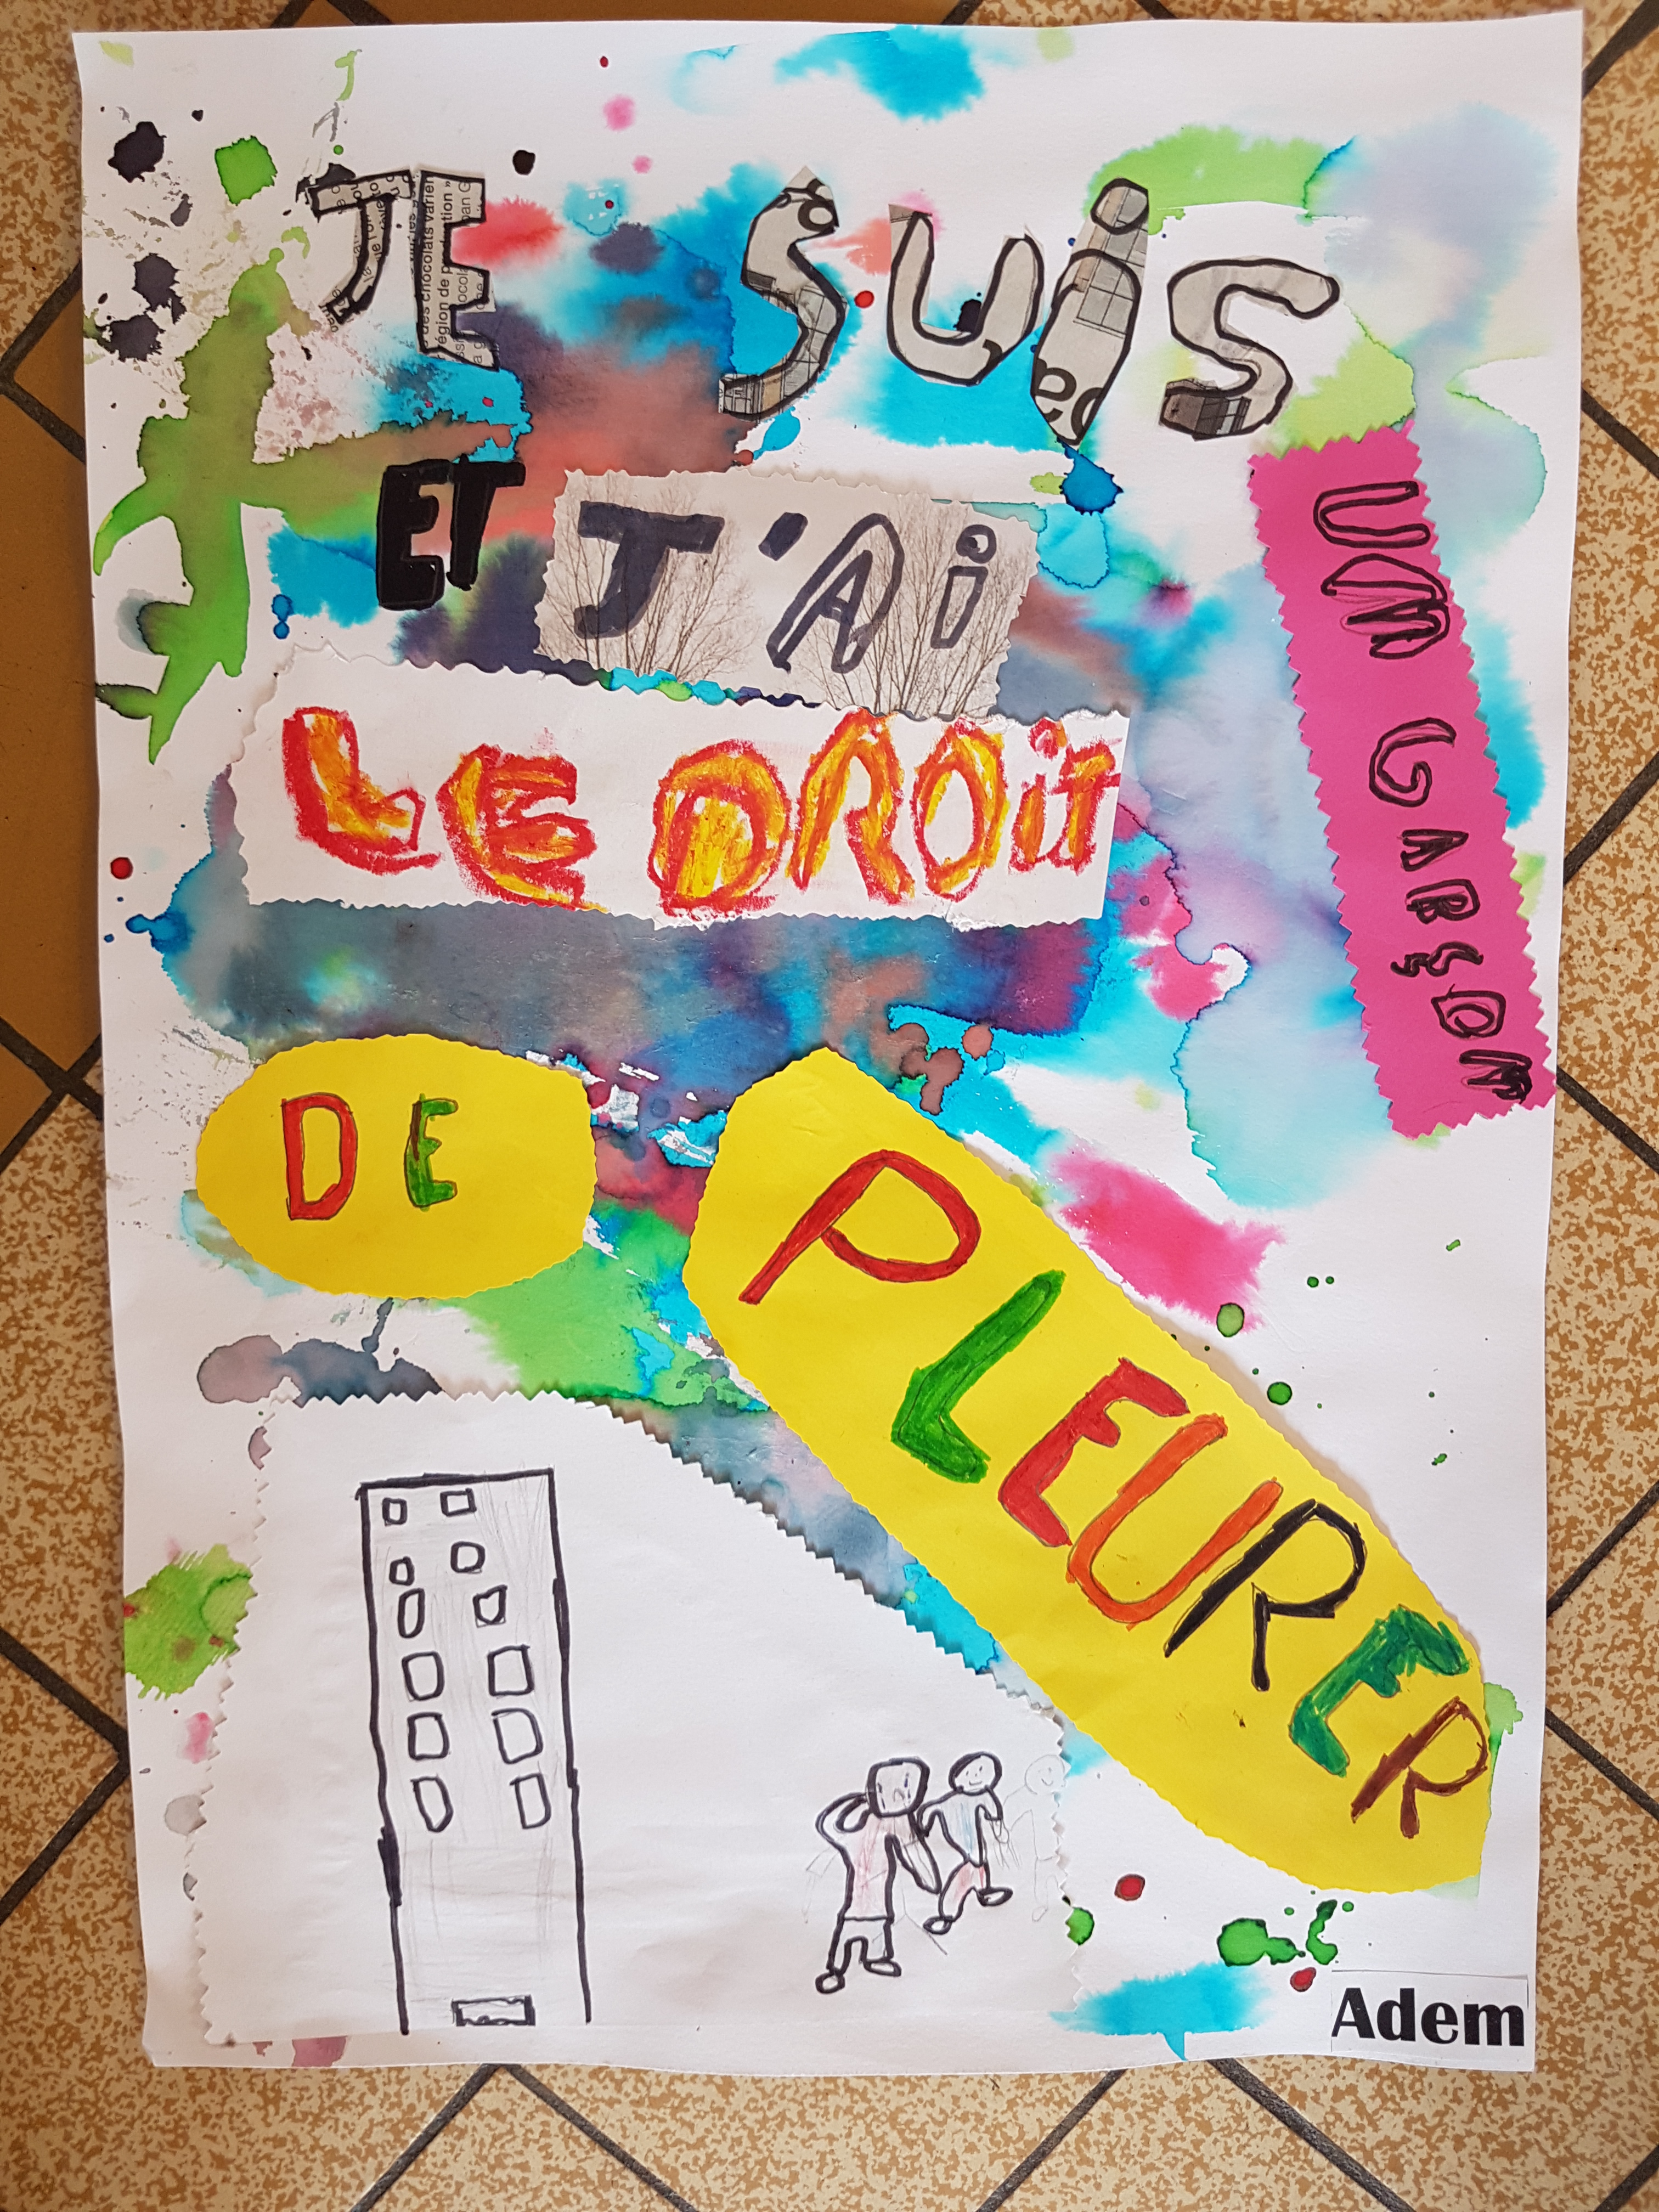 JE SUiS
UN GARÇON
ET J'Ai
LE DROiT
DE
PLEURER
Adem